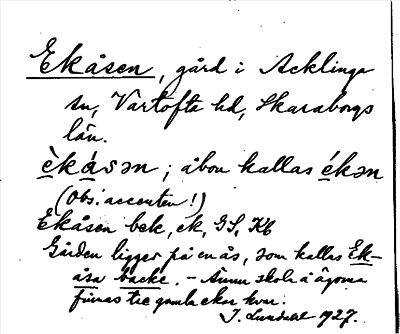 Ekåsen, gård i Acklinga
sn, Vartofta hd, Skaraborgs
län.
èkàsən; åbon kallas ékən
(Obs. accenten!)
Ekåsen bek, ek, GS, Kb
Gården ligger på en ås, som kallas Ek-
åsa backe. – Ännu skola å ägorna
finnas tre gamla ekar kvar.
I. Lundahl 1927.